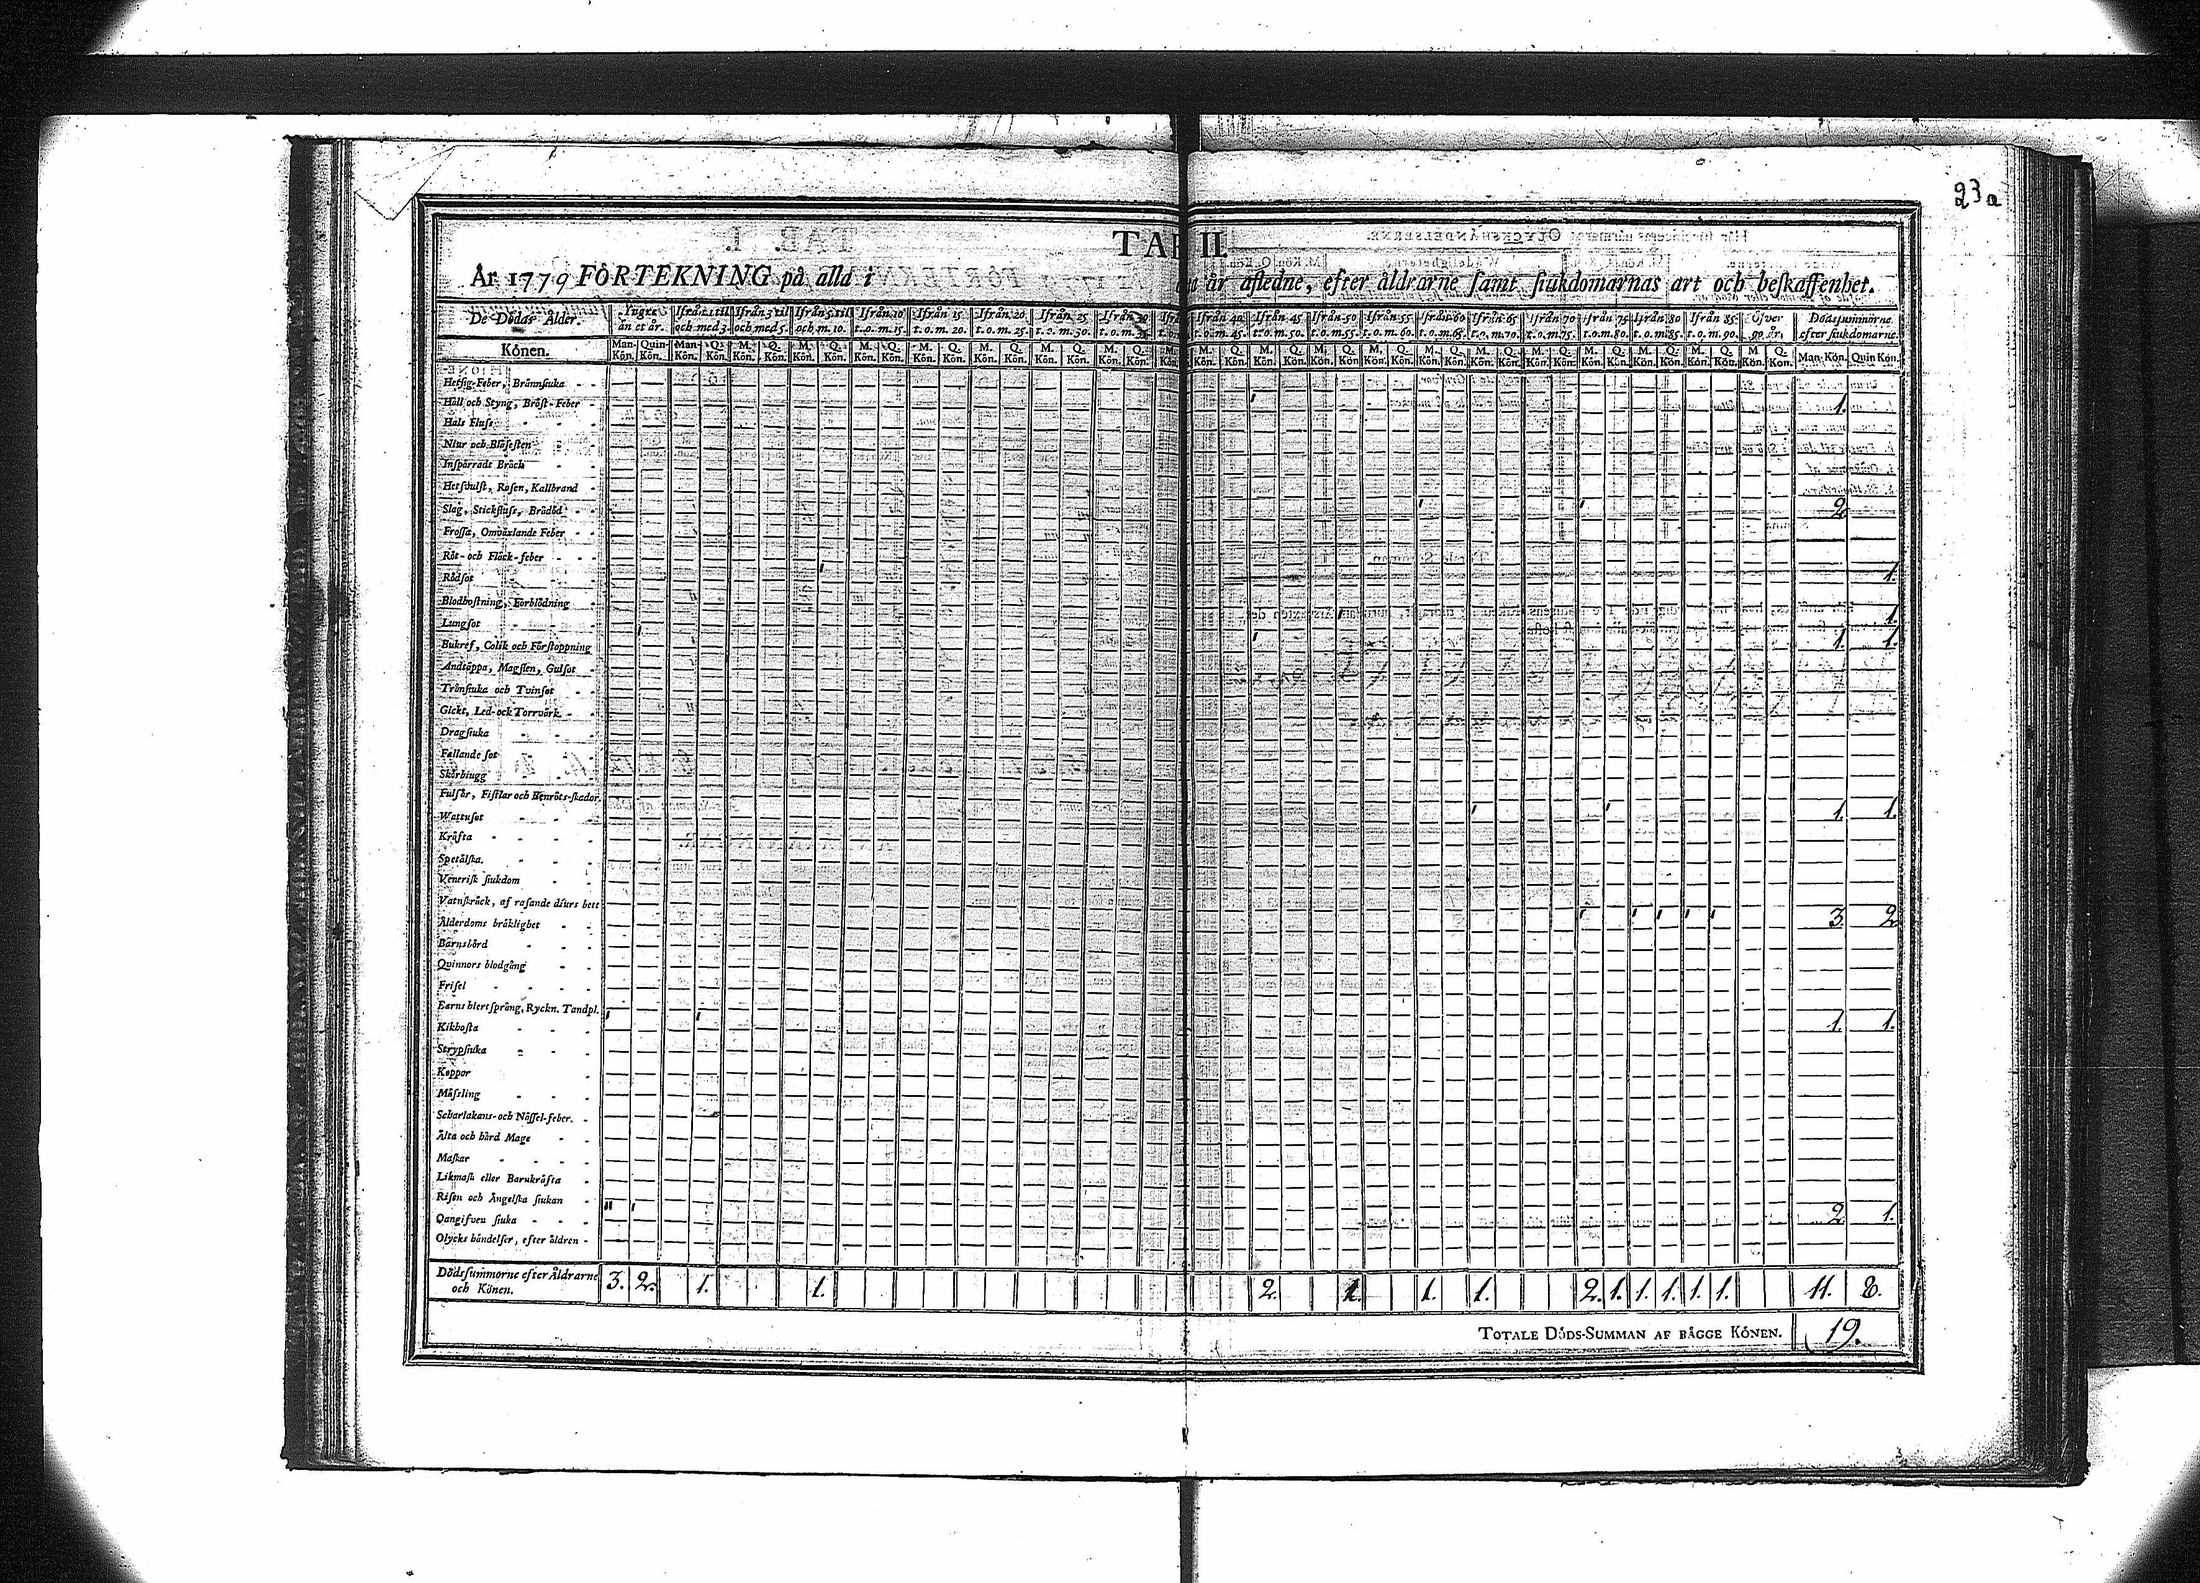 23a
TAB II.
År 1779 FÖRTEKNING på alla i detta år afledne, efter åldrarne samt siukdomarnas art och beskaffenhet.
De Dödas Ålder. Yngre än et år. Ifrån 1 til och med 3. Ifrån 3 til och med 5. Ifrån 5 til och m. 10. Ifrån 10 t.o.m. 15. Ifrån 15 t.o.m. 20. Ifrån 20 t.o.m. 25. Ifrån 25 t.o.m. 30. Ifrån 30 t.o.m. Ifrån 40 t.o.m. 45. Ifrån 45 t.o.m. 50. Ifrån 50 t.o.m. 55. Ifrån 55 t.o.m. 60. Ifrån 60 t.o.m. 65. Ifrån 65 t.o.m. 70. Ifrån 70 t.o.m. 75. Ifrån 75 t.o.m. 80. Ifrån 80 t.o.m. 85. Ifrån 85 t.o.m. 90. Öfver 90 år. Dödssummorne efter siukdomarne.
Könen. Man-Kön. Quin-Kön. Man-Kön. Q. Kön. M. Kön. Q. Kön. M. Kön. Q. Kön. M. Kön. Q. Kön. M. Kön. Q. Kön. M. Kön. Q. Kön. M. Kön. Q. Kön. M. Kön. Q. Kön. M. Kön. Q. Kön. M. Kön. Q. Kön. M. Kön. Q. Kön. M. Kön. Q. Kön. M. Kön. Q. Kön. M. Kön. Q. Kön. M. Kön. Q. Kön. M. Kön. Q. Kön. M. Kön. Q. Kön. M. Kön. Q. Kön. M. Kön. Q. Kön. Man-Kön. Quin Kön.
Hetsig Feber, Brännsiuka
Håll och Styng, Bröst-Feber 1.
Hals Fluss
Niur och Blåsesten
Inspärradt Bråck
Hetsvulst, Rosen, Kallbrand
Slag, Stickfluss, Brådöd 2
Frossa, Omväxlande Feber
Röt- och Fläck-feber
Rödsot 1.
Blodhostning, Förblödning
Lungsot 1.
Bukref, Colik och Förstoppning 1. 1.
Andtäppa, Magsten, Gulsot
Trånsiuka och Tvinsot
Gickt, Led- och Torrvärk
Dragsiuka
Fallande sot
Skörbiugg
Fulsår, Fistlar och Benröts-skador.
Wattusot 1. 1.
Kräfta
Spetälska
Venerisk siukdom
Vatnskräck, af rasande diurs bett
Ålderdoms bräklighet 3. 2
Barnsbörd
Qvinnors blodgång
Frisel
Barns hlertsprång, Ryckn. Tandpl.
Kikhosta 1. 1.
Strypsiuka
Koppor
Mässling
Scharlakans- och Nässel-feber.
Älta och hård Mage
Maskar
Likmask eller Barukräfta
Risen och Ängelska siukan
Oangifven siuka 2. 1.
Olycks händelser, efter åldren
Dödssummorne efter Åldrarne och Könen. 3. 2. 1. 1. 2. 1. 1. 1. 2. 1. 1. 1. 1. 1. 11. 8.
TOTALE DÖDS-SUMMAN AF BÅGGE KÖNEN. 19.